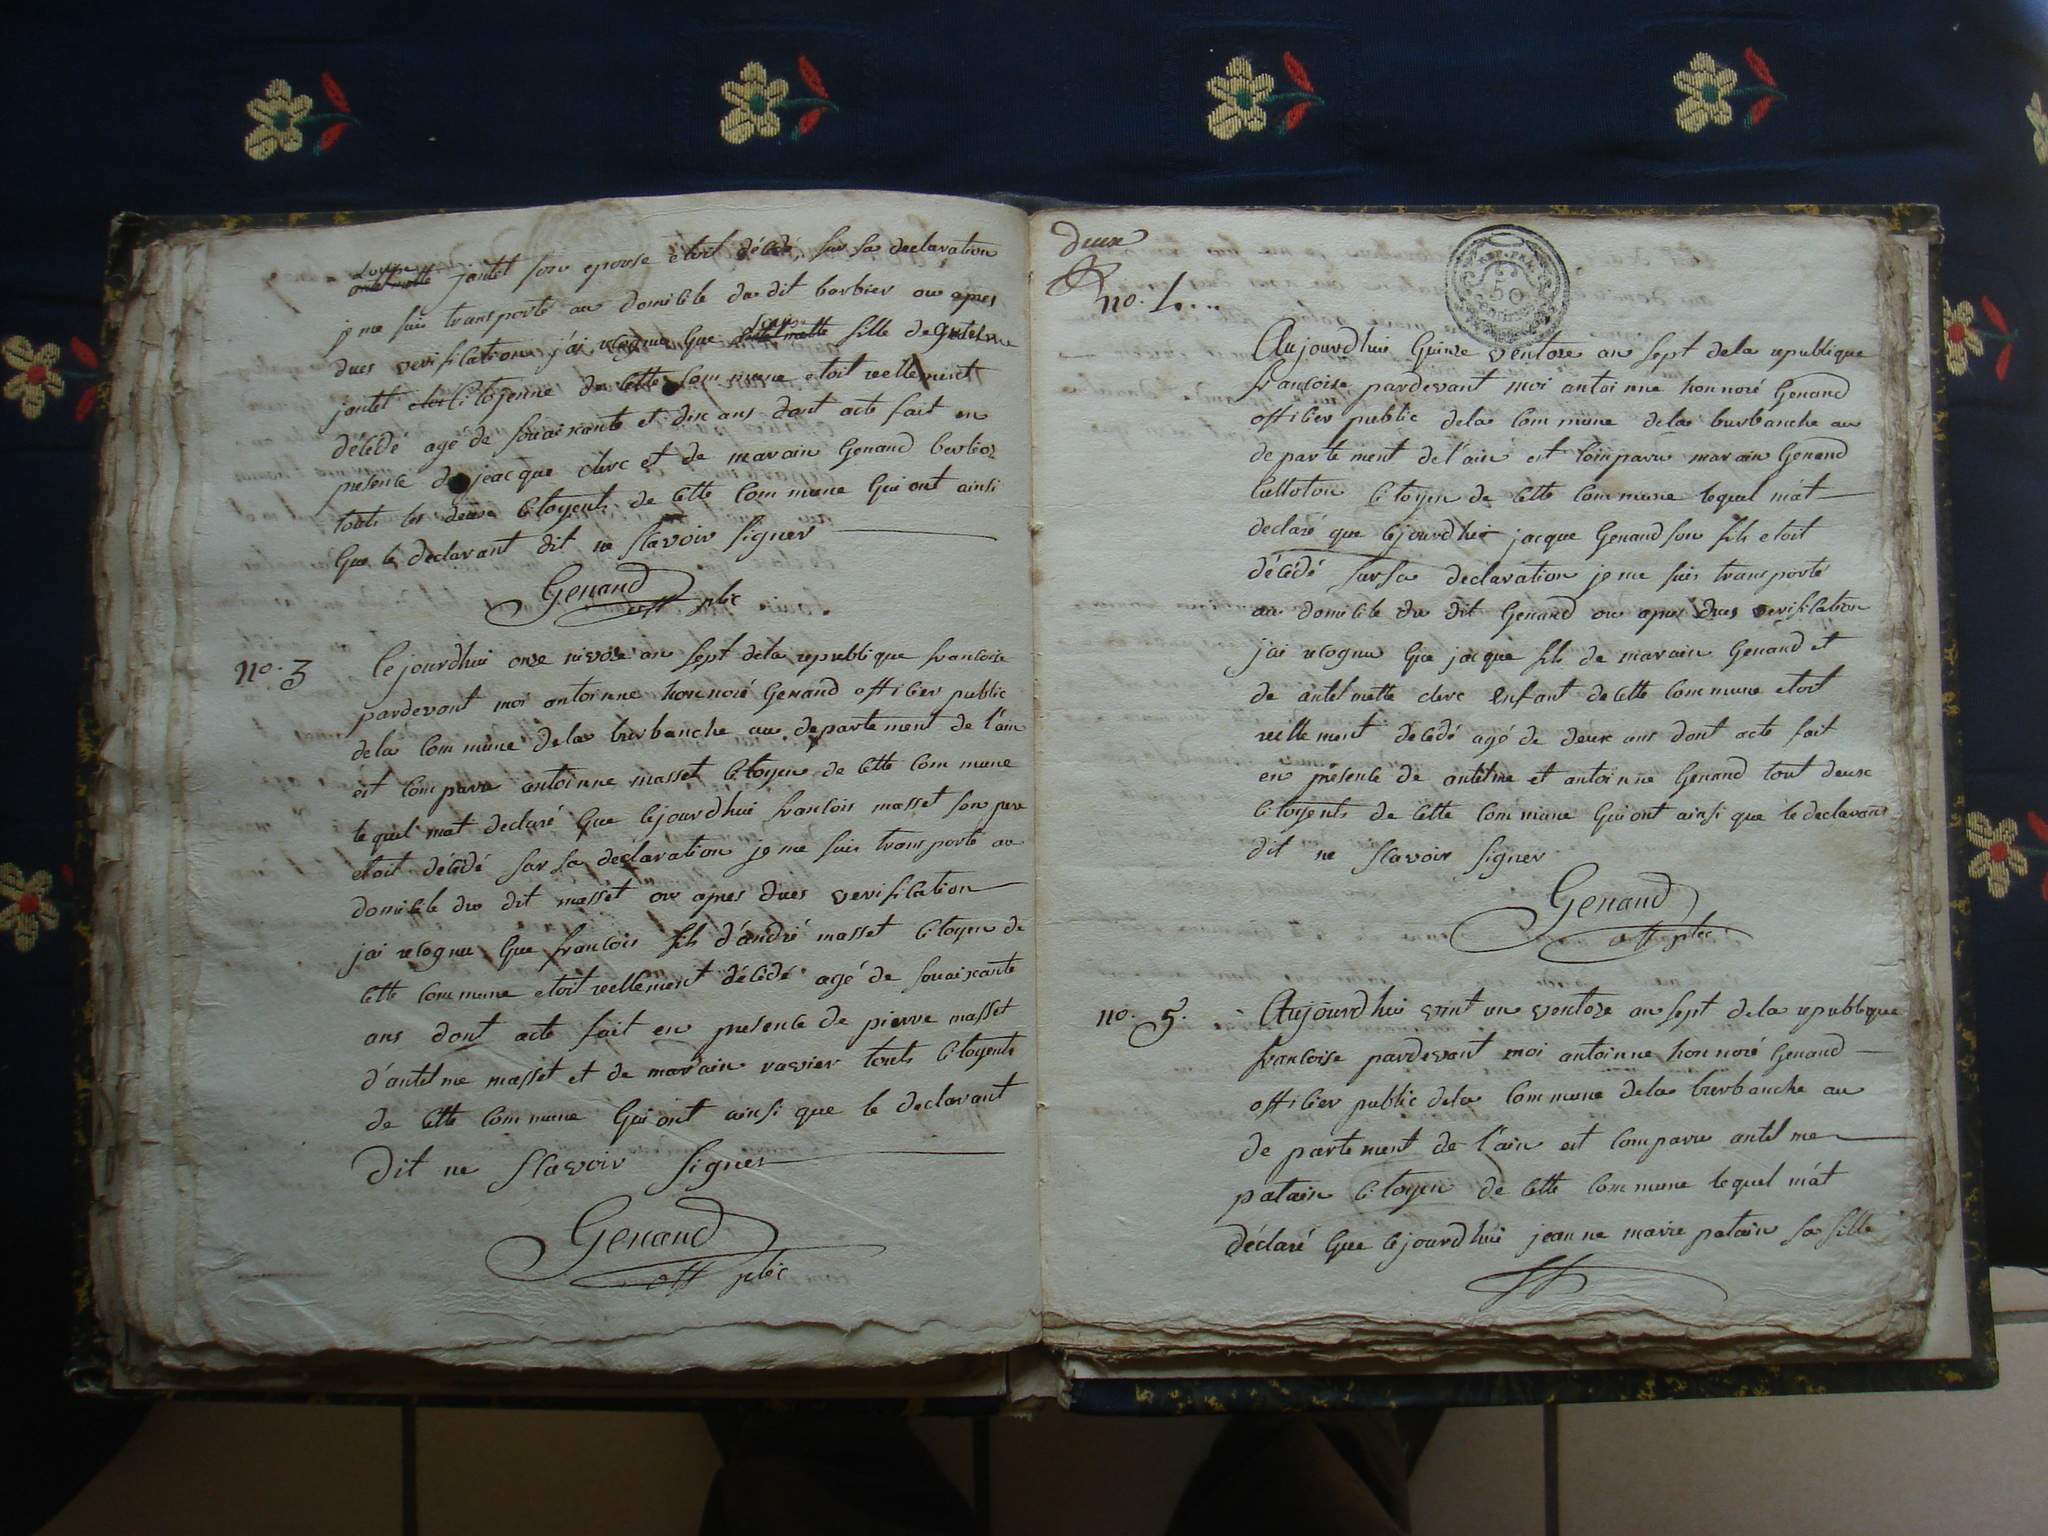 Louise
antelmette jantet son epouse etoit décédé, sur sa declaration
je me suis transporté au domicile du dit barbier ou apres
dues verification j'ai recognu que antelmette fille de antelme
jantet citoÿenne de cette commune etoit reellement
décédé agé de souaixante et dix ans dont acte fait en
presence de jeacque clerc et de marain Genand berlioz
touts les deuxe citoyents de cette commune qui ont ainsi
que le declarant dit ne scavoir signer
Genand
off plic
no. 3 Cejourdhui onze nivose an sept dela republique francoise
pardevant moi antoinne honnoré Genand officier public
dela commune dela burbanche au departement de l'ain
est comparu antoinne masset citoyen de cette commune
lequel mat declaré que cejourdhui francois masset son pere
etoit décédé sur sa declaration je me suis transporté au
domicile du dit masset ou apres dues verification
jai recognu que francois fils d'andré masset citoyen de
cette commune etoit reellement décédé agé de souaixante
ans dont acte fait en presence de pierre masset
d'antelme masset et de marain ravier touts citoyents
de cette commune qui ont ainsi que le declarant
dit ne scavoir signer
Genand
off plic
deux
no. 4...
REP. FRA.
50
Aujourdhui quinze ventose an sept dela republique
francoise pardevant moi antoinne honnoré Genand
officier public dela commune dela burbanche au
departement de l'ain est comparu marain Genand
culloton citoyen de cette commune lequel m'at
declaré que cejourdhui jacque Genand son fils etoit
décédé sur sa declaration je me suis transporté
au domicile du dit Genand ou apres dues verification
j'ai recognu que jacque fils de marain Genand et
de antelmette clerc enfant de cette commune etoit
reillement décédé agé de deux ans dont acte fait
en présence de antelme et antoinne Genand tout deuxe
citoyents de cette commune qui ont ainsi que le declarant
dit ne scavoir signer
Genand
off plic
no. 5. Aujourdhui vint un ventose an sept de la republique
francoise pardevant moi antoinne honnoré Genand
officier public dela commune dela burbanche au
departement de l'ain est comparu antelme
patain citoyen de cette commune lequel m'at
déclaré que cejourdhui jeanne marie patain sa fille